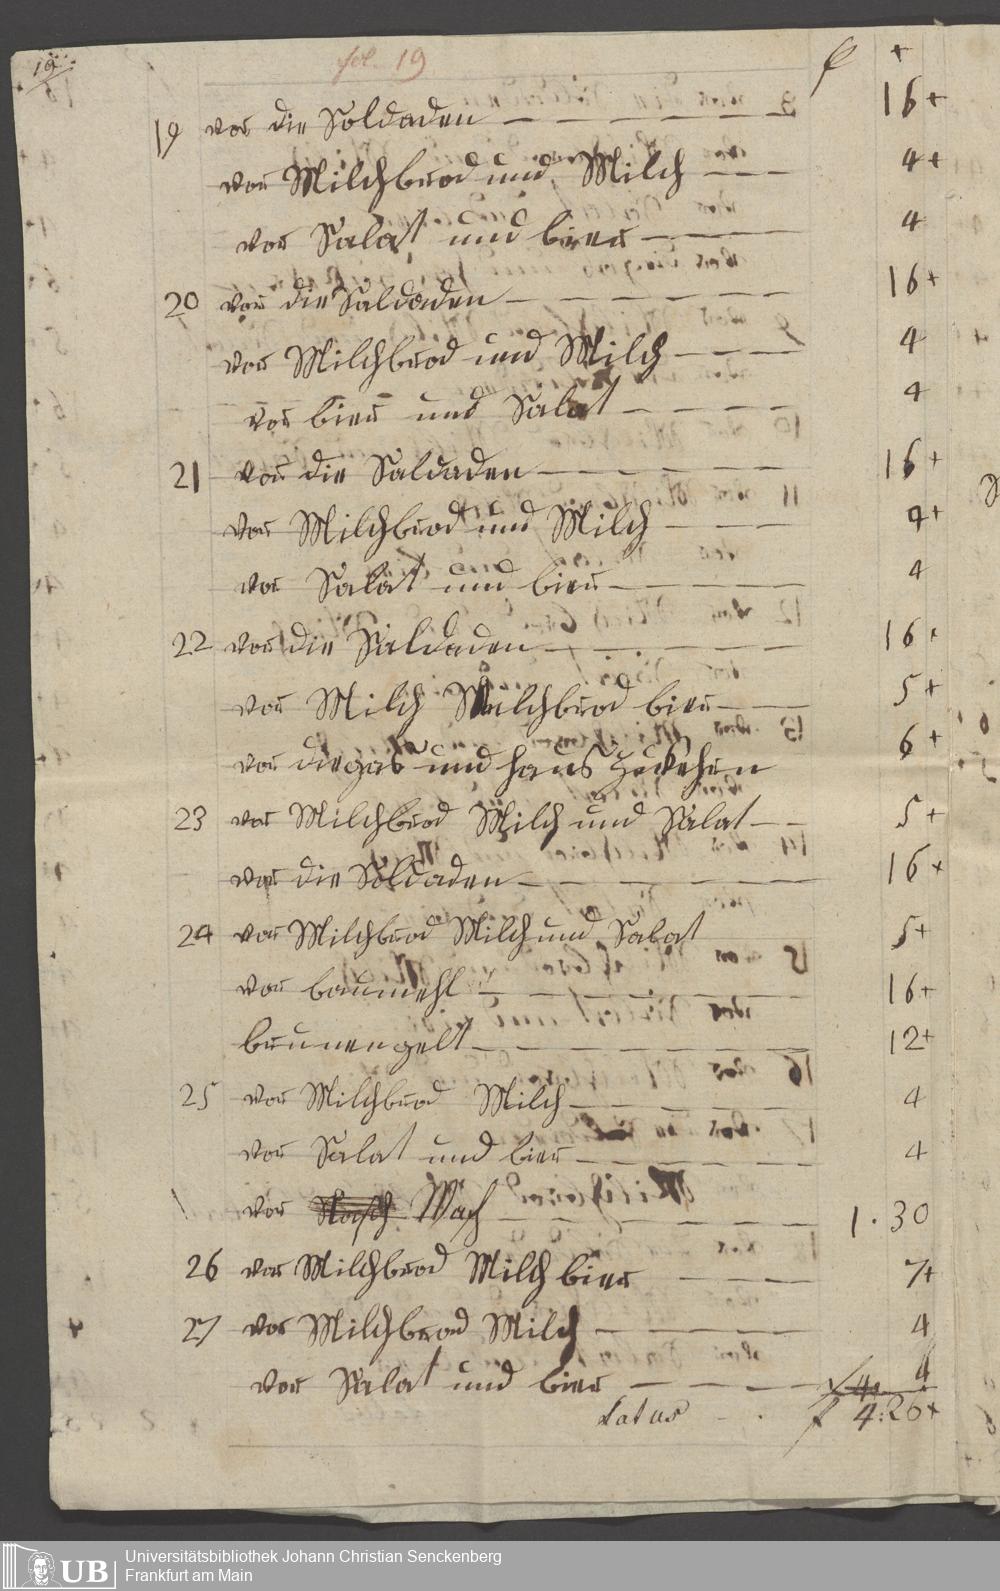 19.
fol. 19
f x
19 vor die Soldaden — — — — — — 16 x
vor Milchbrod und Milch — — — 4 x
vor Salat und bier — — — — 4
20 vor die Saldaden — — — — — — 16 x
vor Milchbrod und Milch — — — 4
vor bier und Salat — — — — 4
21 vor die Saldaden — — — — — 16 x
vor Milchbrod und Milch — — — 4 x
vor Salat und bier — — — — 4
22 vor die Saldaden — — — — — 16 x
vor Milch Milchbrod bier — — 5 x
vor die gas und haus 6 x
23 vor Milchbrod Milch und Salat — — 5 x
vor die Soldaden — — — — — 16 x
24 vor Milchbrod Milch und Salat 5 x
vor baumehl — — — — — 16 x
brunnengelt — — — — — — 12 x
25 vor Milchbrod Milch — — — — 4
vor Salat und bier — — — — 4
vor Wach — — — — — 1 . 30
26 vor Milchbrod Milch bier — — — 7 x
27 vor Milchbrod Milch — — — — 4
vor Salat und bier — — — — 4
Latus — . f 4 : 26 x
Universitätsbibliothek Johann Christian Senckenberg
Frankfurt am Main
UB